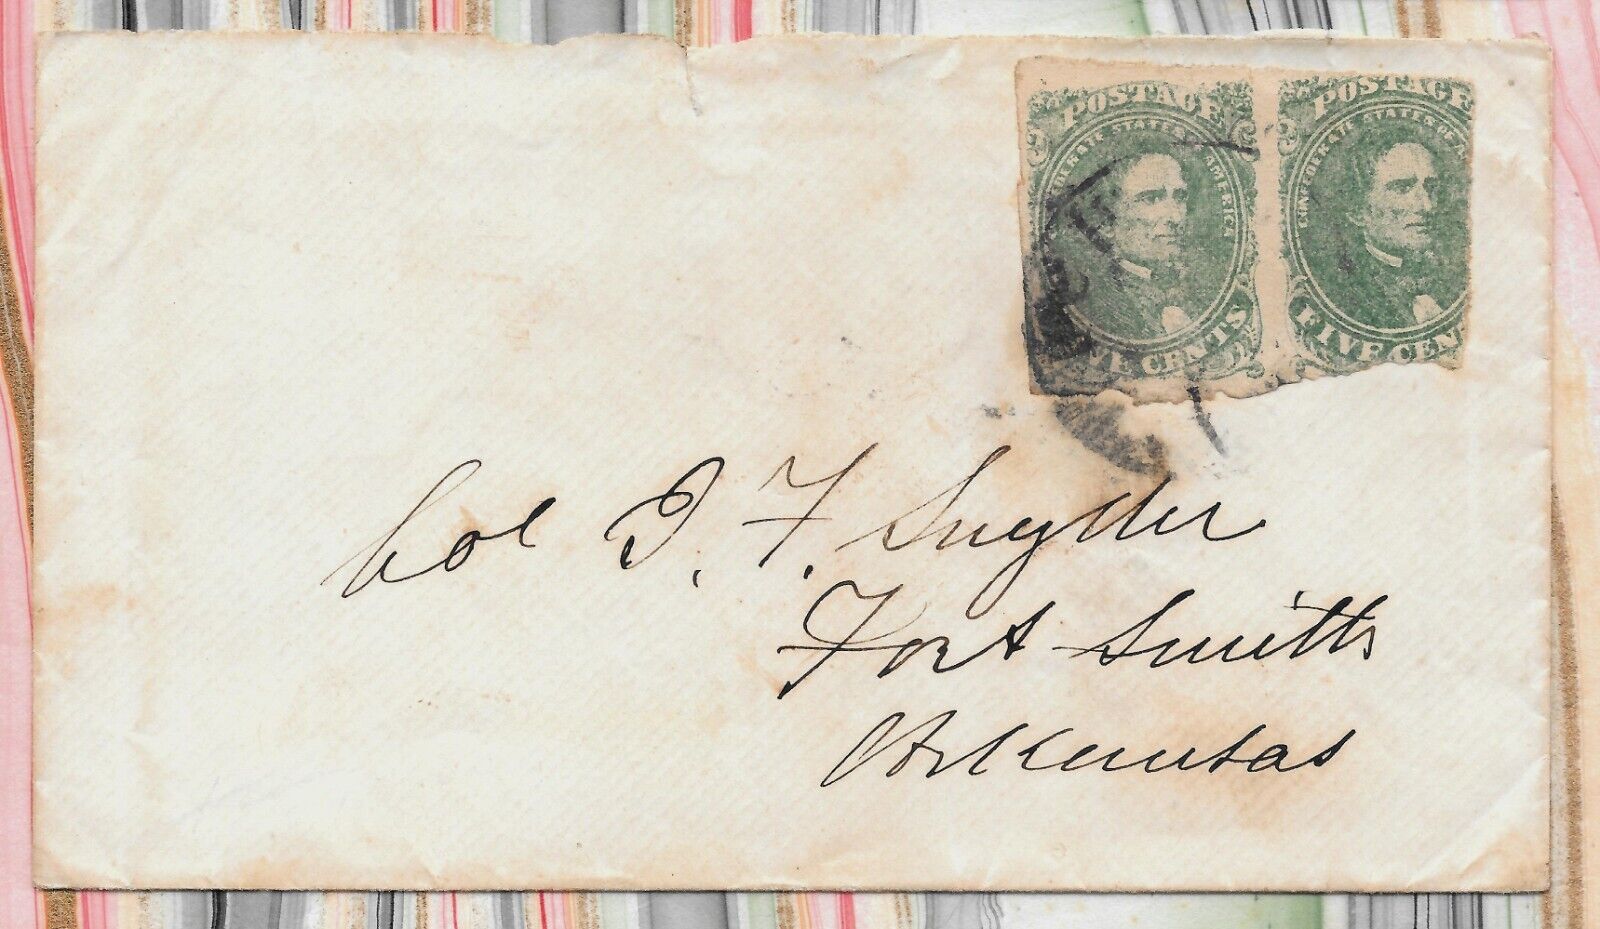 POSTAGE
CONFEDERATE STATES AMERICA
VE CENTS
POSTAGE
CONFEDERATE STATES OF
FIVE CEN
Col D. F. Snyder
Fort Smith
Arkansas